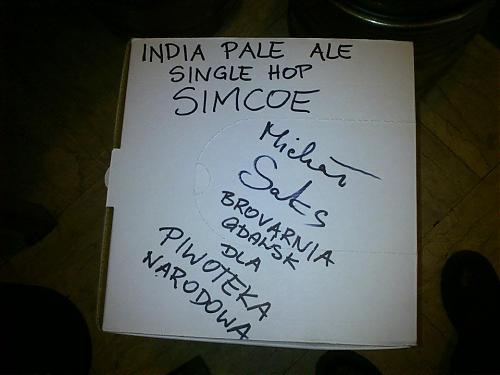 INDIA PALE ALE
SINGLE HOP
SIMCOE
Michał
Saks
BROVARNIA
GDAŃSK
DLA
PIWOTEKA
NARODOWA